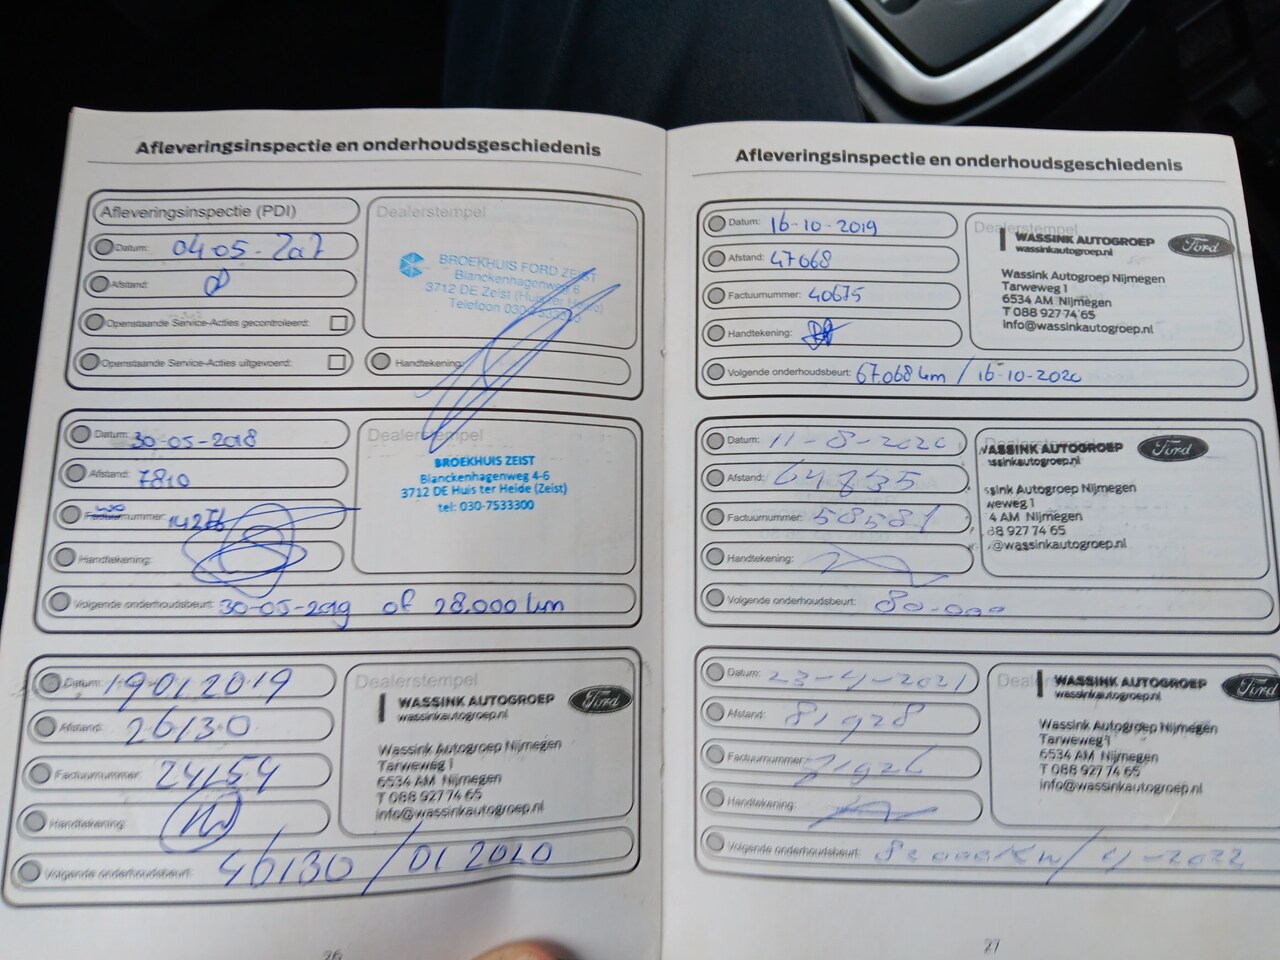 Afleveringsinspectie en onderhoudsgeschiedenis
Afleveringsinspectie (PDI)
Datum: 04-05-2017
Afstand:
Openstaande Service-Acties gecontroleerd:
Openstaande Service-Acties uitgevoerd:
Dealerstempel
BROEKHUIS FORD ZEIST
Blanckenhagenweg 6
3712 DE Zeist (Huis ter Heide)
Telefoon 030-7533300
Handtekening:
Datum: 30-05-2018
Afstand: 7810
Factuurnummer:
Handtekening:
Dealerstempel
BROEKHUIS ZEIST
Blanckenhagenweg 4-6
3712 DE Huis ter Heide (Zeist)
tel: 030-7533300
Volgende onderhoudsbeurt: 30-05-2019 of 28.000 km
Datum: 19 01 2019
Afstand: 26130
Factuurnummer: 24154
Handtekening:
Dealerstempel
WASSINK AUTOGROEP
wassinkautogroep.nl
Ford
Wassink Autogroep Nijmegen
Tarweweg 1
6534 AM Nijmegen
T 088 927 74 65
info@wassinkautogroep.nl
Volgende onderhoudsbeurt: 46130 / 01 2020
26
Afleveringsinspectie en onderhoudsgeschiedenis
Datum: 16-10-2019
Afstand: 47068
Factuurnummer: 40675
Handtekening:
Dealerstempel
WASSINK AUTOGROEP
wassinkautogroep.nl
Ford
Wassink Autogroep Nijmegen
Tarweweg 1
6534 AM Nijmegen
T 088 927 74 65
info@wassinkautogroep.nl
Volgende onderhoudsbeurt: 67.068 km / 16-10-2020
Datum: 11-8-2020
Afstand: 64835
Factuurnummer: 58581
Handtekening:
Dealerstempel
WASSINK AUTOGROEP
ssinkautogroep.nl
Ford
sink Autogroep Nijmegen
weweg 1
4 AM Nijmegen
88 927 74 65
@wassinkautogroep.nl
Volgende onderhoudsbeurt: 80.000
Datum: 23-4-2021
Afstand: 81928
Factuurnummer:
Handtekening:
WASSINK AUTOGROEP
wassinkautogroep.nl
Ford
Wassink Autogroep Nijmegen
Tarweweg 1
6534 AM Nijmegen
T 088 927 74 65
info@wassinkautogroep.nl
Volgende onderhoudsbeurt: 4-2022
27